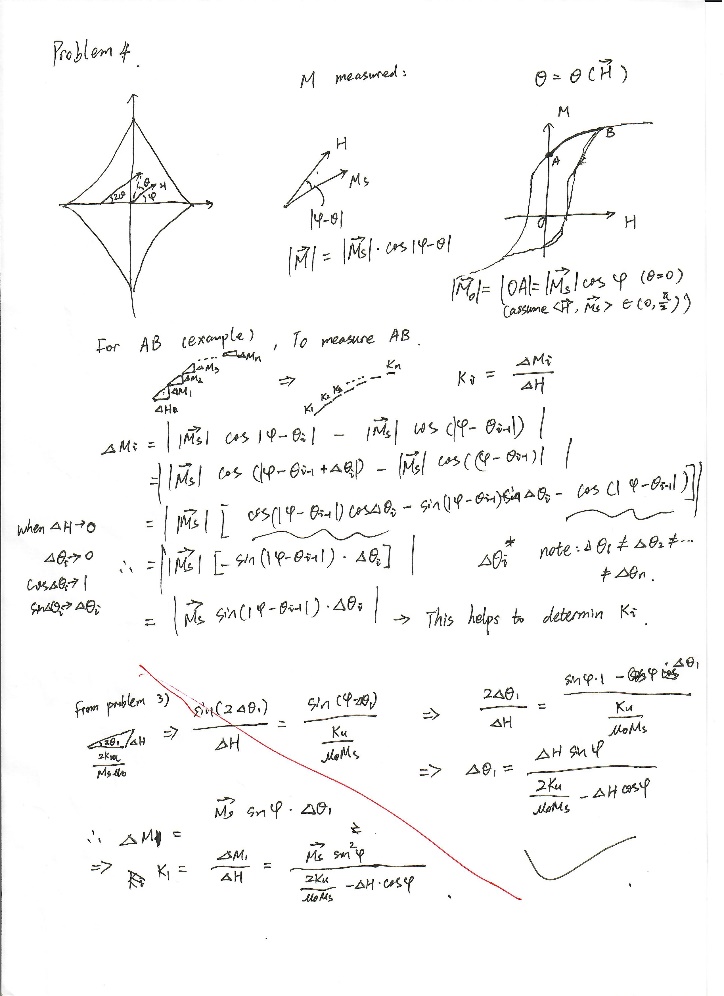 Problem 4.
M measured:
θ = θ(H⃗)
M
H
Ms
|φ-θ|
|M⃗| = |M⃗s| · cos|φ-θ|
2θ
θ
H
φ
A
B
O
H
|M⃗o| = |OA| = |M⃗s| cos φ (θ=0)
(assume <H⃗, M⃗s> ∈ (0, π/2))
For AB (example), To measure AB.
ΔMn
ΔM3
ΔM2
ΔM1
⇒
K1 K2 K3
Kn
Ki = ΔMi / ΔH
ΔMi = | |M⃗s| cos|φ-θi| - |M⃗s| cos(|φ-θi-1|) |
= | |M⃗s| cos(|φ-θi-1 + Δθi|) - |M⃗s| cos(|φ-θi-1)| |
= | |M⃗s| [ cos(|φ-θi-1|) cosΔθi - sin(|φ-θi-1|) sin Δθi - cos(|φ-θi-1|) ] |
when ΔH→0
Δθi→0
cosΔθi→1
sinΔθi→Δθi
∴ = | |M⃗s| [-sin(|φ-θi-1|) · Δθi] |
Δθi* note: Δθ1 ≠ Δθ2 ≠ ...
≠ Δθn.
= | M⃗s sin(|φ-θi-1|) · Δθi | → This helps to determin Ki.
from problem 3)
2θ1
ΔH
⇒ sin(2Δθ1) / ΔH = sin(φ-Δθ1) / (Ku / μoMs)
⇒ 2Δθ1 / ΔH = (sinφ·1 - cosφ·Δθ1) / (Ku / μoMs)
⇒ Δθ1 = ΔH sinφ / (2Ku / μoMs - ΔH cosφ)
∴ ΔM1 = M⃗s sinφ · Δθ1
⇒ K1 = ΔM1 / ΔH = M⃗s sin²φ / (2Ku / μoMs - ΔH·cosφ).